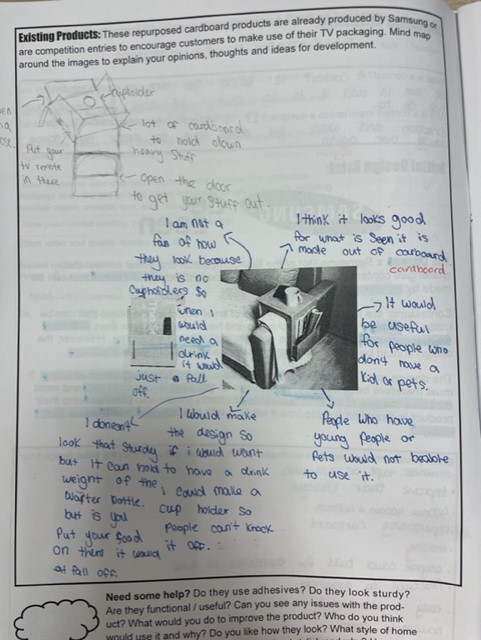 Existing Products: These repurposed cardboard products are already produced by Samsung or
are competition entries to encourage customers to make use of their TV packaging. Mind map
around the images to explain your opinions, thoughts and ideas for development.
cupholder
lot of cardboard
to hold down
heavy stuff
Put your
tv remote
in there
open the door
to get your stuff out.
I am not a
fan of how
they look because
they is no
Cupholders so
when I
would
need a
drink
it would
just a fall
off.
I think it looks good
for what is seen it is
made out of carboard.
cardboard
It would
be useful
for people who
don't have a
kid or pets.
People who have
young people or
Pets would not beable
to use it.
I would make
the design so
if i would want
to have a drink
i could make a
cup holder so
people can't knock
it off.
I doesn't
look that sturdy
but it can hold
weight of the
Warter bottle.
but is you
Put your food
on there it would
fall off.
Need some help? Do they use adhesives? Do they look sturdy?
Are they functional / useful? Can you see any issues with the prod-
uct? What would you do to improve the product? Who do you think
would use it and why? Do you like how they look? What style of home